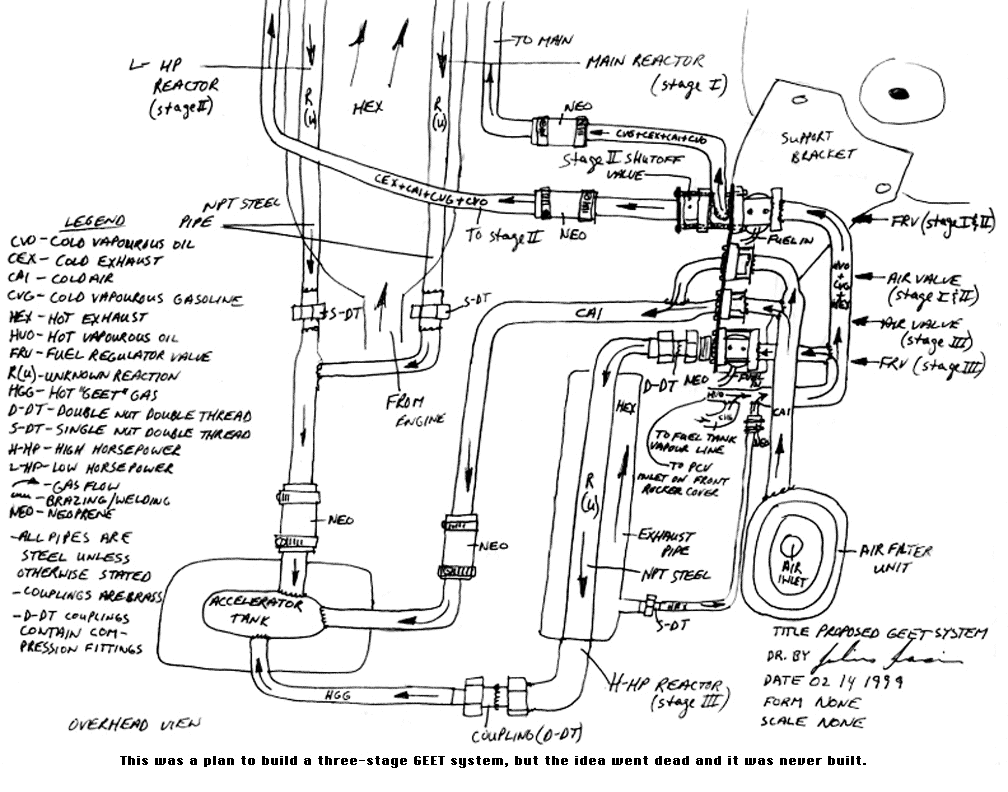 TO MAIN
L-HP
REACTOR
(stage II)
MAIN REACTOR
(stage I)
HEX
R
(u)
R
(u)
NEO
CVG+CEX+CAI+CVO
SUPPORT
BRACKET
Stage II SHUTOFF
VALVE
CEX+CAI+CVG+CVO
NPT STEEL
PIPE
TO stage II
NEO
FRV (stage I & II)
FUEL IN
LEGEND
CVO-COLD VAPOUROUS OIL
CEX-COLD EXHAUST
CAI-COLD AIR
CVG-COLD VAPOUROUS GASOLINE
HEX-HOT EXHAUST
HVO-HOT VAPOUROUS OIL
FRV-FUEL REGULATOR VALVE
R(u)-UNKNOWN REACTION
HGG-HOT "GEET" GAS
D-DT-DOUBLE NUT DOUBLE THREAD
S-DT-SINGLE NUT DOUBLE THREAD
H-HP-HIGH HORSEPOWER
L-HP-LOW HORSEPOWER
-GAS FLOW
-BRAZING/WELDING
NEO-NEOPRENE
-ALL PIPES ARE
STEEL UNLESS
OTHERWISE STATED
-COUPLINGS ARE BRASS
-D-DT COUPLINGS
CONTAIN COM-
PRESSION FITTINGS
AIR VALVE
(stage I & II)
AIR VALVE
(stage III)
FRV (stage III)
S-DT
S-DT
CAI
HVO+CVG+HEX
D-DT
NEO
FUEL IN
HVO
CVG
NEO
CAI
FROM
ENGINE
HEX
TO FUEL TANK
VAPOUR LINE
TO PCV
INLET ON FRONT
ROCKER COVER
R
(u)
NEO
NEO
EXHAUST
PIPE
NPT STEEL
AIR FILTER
UNIT
AIR
INLET
HEX
S-DT
ACCELERATOR
TANK
HGG
H-HP REACTOR
(stage III)
COUPLING (D-DT)
OVERHEAD VIEW
TITLE PROPOSED GEET SYSTEM
DR. BY
DATE 02 14 1999
FORM NONE
SCALE NONE
This was a plan to build a three-stage GEET system, but the idea went dead and it was never built.